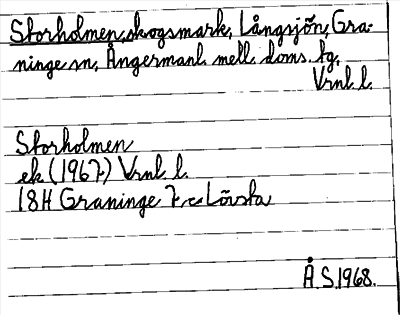 Storholmen, skogsmark, Långsjön, Gra-
ninge sn, Ångermanl. mell. doms. tg,
Vrnl. l.
Storholmen
ek (1967) Vrnl. l.
18H Graninge 7 c Lövsta
Å S. 1968.